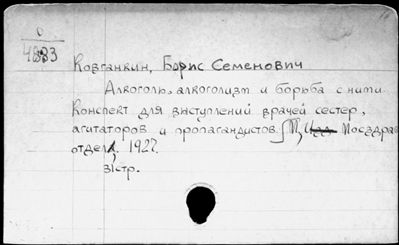 0
4883
Ковганкин, Борис Семенович
Алкоголь, алкоголизм и борьба с ними.
Конспект для выступлений врачей сестер,
агитаторов и пропагандистов. М, Изд. Мосздрав
отдел, 1927.
31стр.